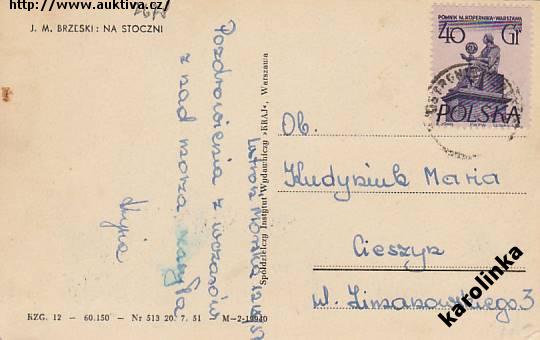 http://www.auktiva.cz/
J. M. BRZESKI: NA STOCZNI
Pozdrowienia z wczasów
z nad morza
Spółdzielczy Instytut Wydawniczy »KRAJ«, Warszawa
POMNIK M. KOPERNIKA-WARSZAWA
40 Gr
POLSKA
Ob.
Maria
Cieszyn
ul.
3
KZG. 12 — 60.150 — Nr 513 20. 7. 51 M-2-19940
karolinka